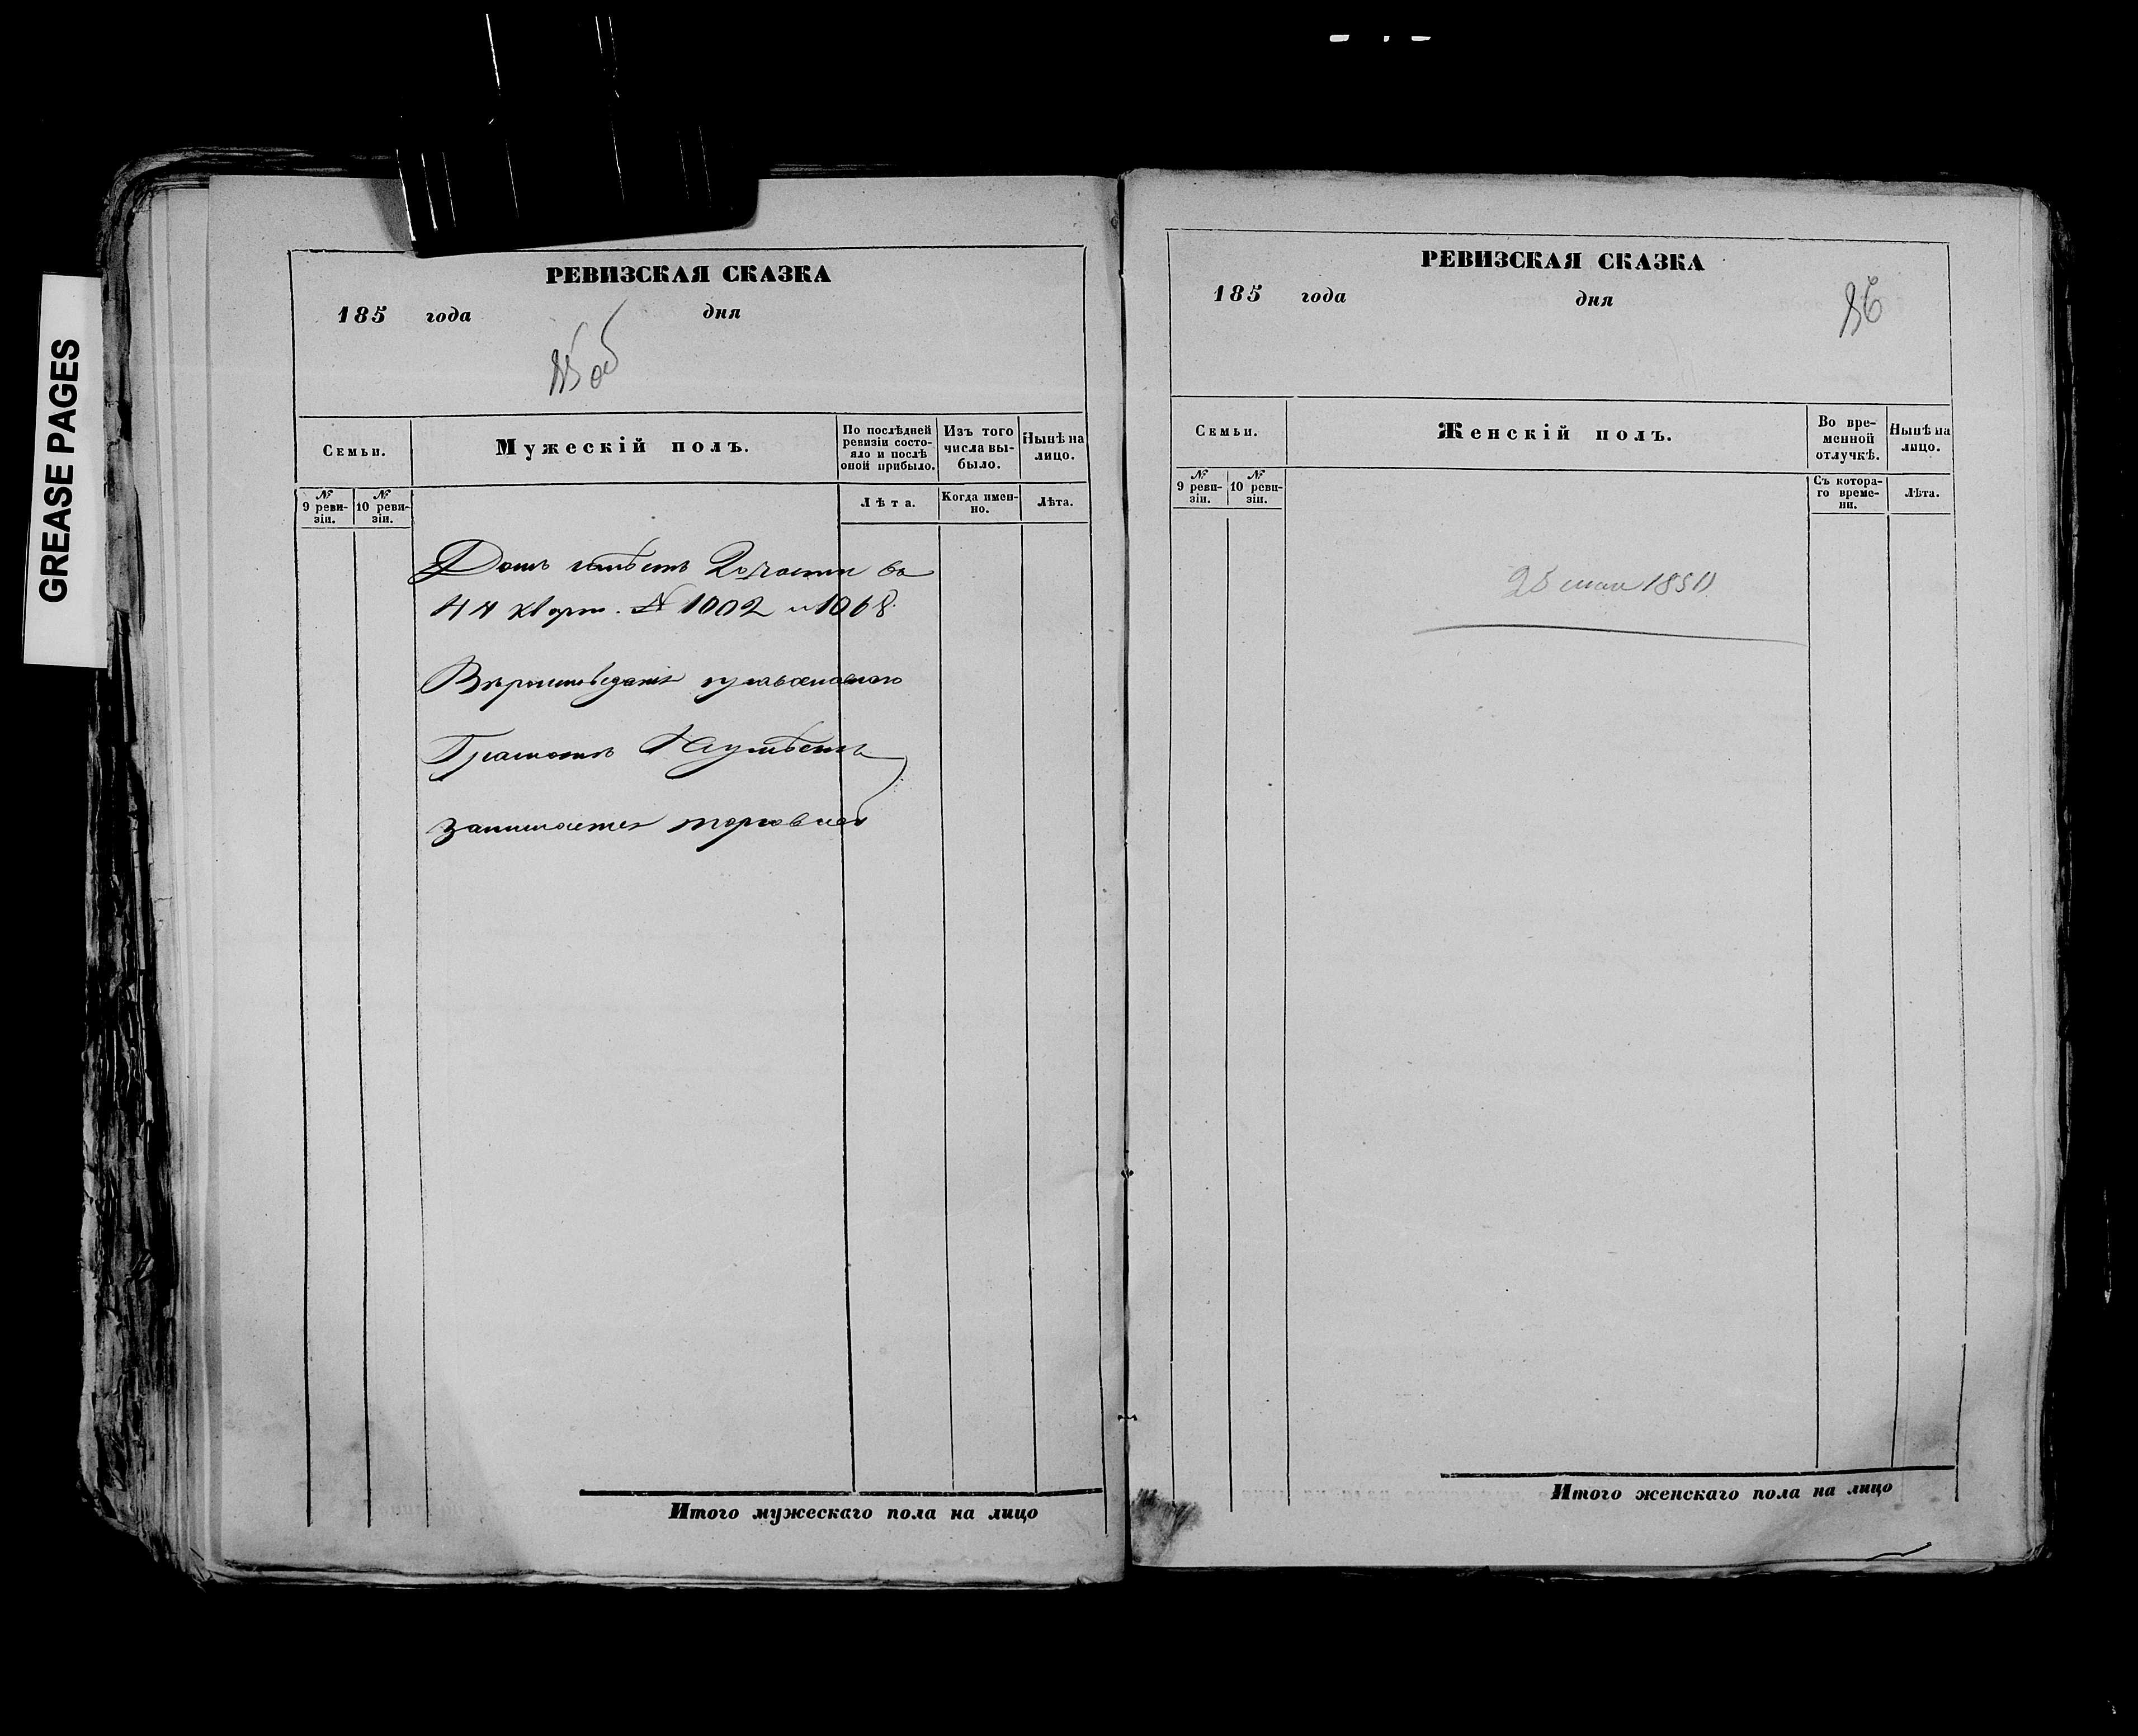 GREASE PAGES
РЕВИЗСКАЯ СКАЗКА
185 года дня
85 об
Семьи.
Мужескій полъ.
По послѣдней
ревизіи состо-
яло и послѣ
оной прибыло.
Изъ того
числа вы-
было.
Нынѣ на
лицо.
№
9 реви-
зіи.
№
10 реви-
зіи.
Лѣта.
Когда имен-
но.
Лѣта.
Домъ имѣетъ 2й части въ
44 кварт. № 1002 и 1068
Вѣроисповѣданія православнаго
Грамотѣ Неумѣетъ
занимается торговлей
Итого мужескаго пола на лицо
РЕВИЗСКАЯ СКАЗКА
185 года дня
86
Семьи.
Женскій полъ.
Во вре-
менной
отлучкѣ.
Нынѣ на
лицо.
№
9 реви-
зіи.
№
10 реви-
зіи.
Съ котора-
го време-
ни.
Лѣта.
мая 185
Итого женскаго пола на лицо